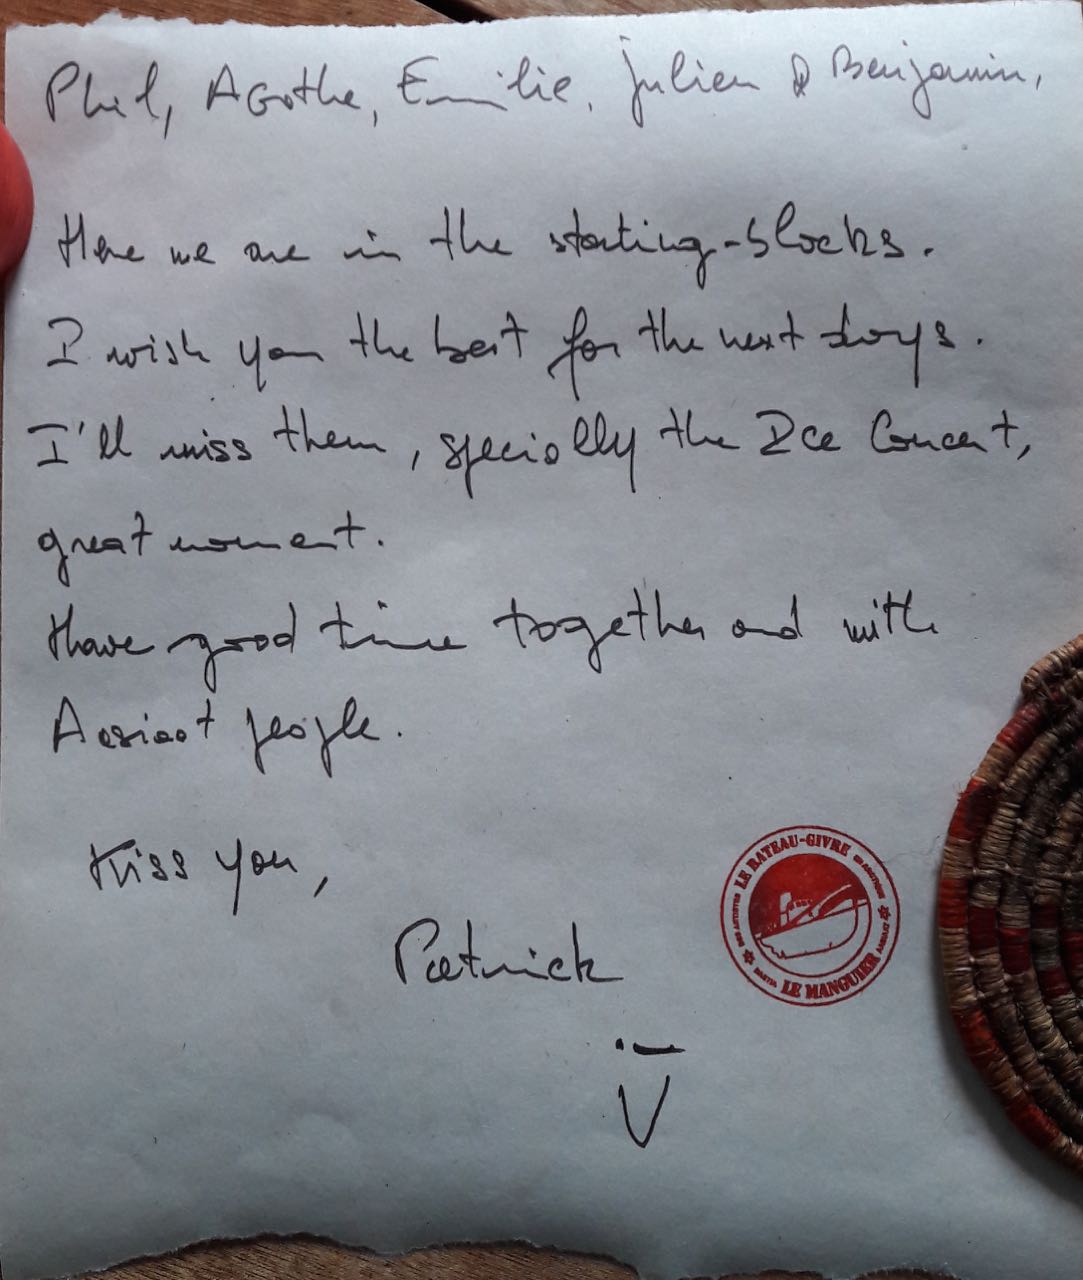 Phil, Agathe, Emilie, Julien & Benjamin,
Here we are in the starting-blocks.
I wish you the best for the next days.
I'll miss them, specially the Ice Concert,
great moment.
Have good time together and with
Aasiaat people.
Kiss you,
Patrick
LE RATEAU-GIVRE
DES ARTISTES EN ARCTIQUE
LE MANGUIER